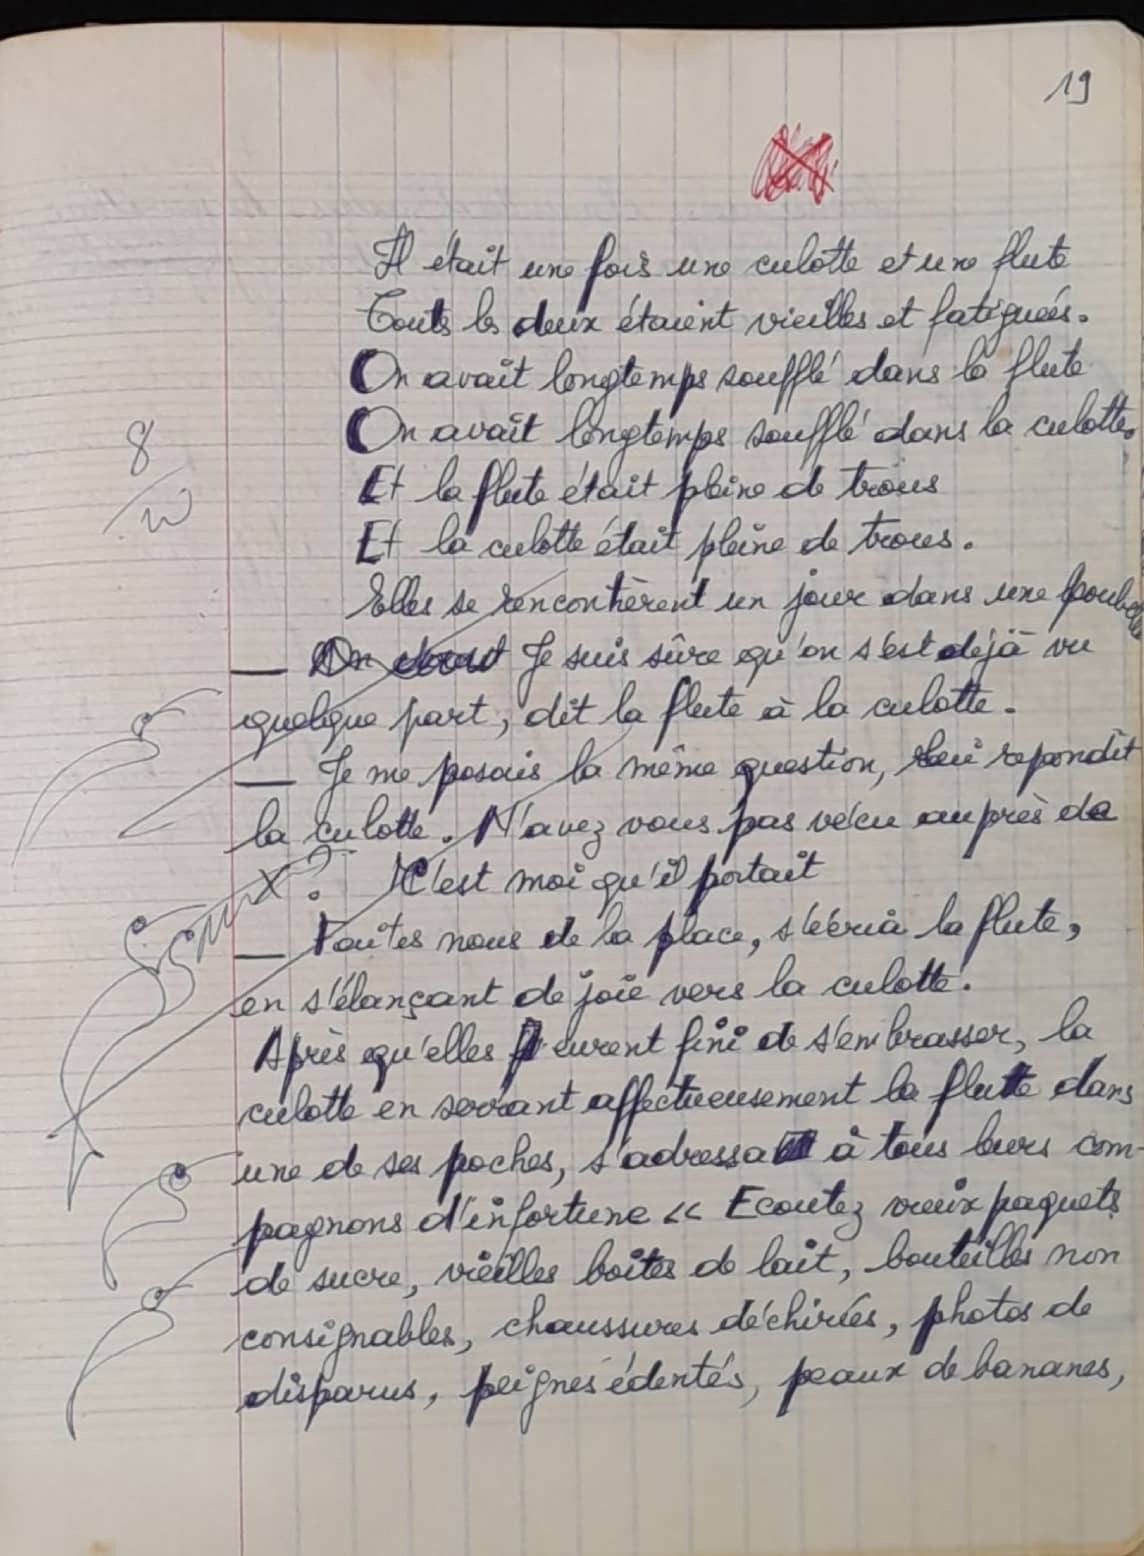 19
Il était une fois une culotte et une flute
Touts les deux étaient vieilles et fatiguées.
On avait longtemps soufflé dans la flute
On avait longtemps soufflé dans la culotte.
8
Et la flute était pleine de trous
Et la culotte était pleine de trous.
Elles se rencontrèrent un jour dans une poubelle
— On Je suis sûre qu'on s'est déjà vu
quelque part, dit la flute à la culotte.
— Je me posais la même question, lui repondit
la culotte. N'avez vous pas vécu auprès de
X ? C'est moi qu'il portait
— Faites nous de la place, s'écria la flute,
en s'élançant de joie vers la culotte.
Après qu'elles eurent fini de s'embrasser, la
culotte en serrant affectueusement la flute dans
une de ses poches, s'adressa à tous leurs com-
pagnons d'infortune << Ecoutez vieux paquets
de sucre, vieilles boites de lait, bouteilles non
consignables, chaussures déchirées, photos de
disparus, peignes édentés, peaux de bananes,